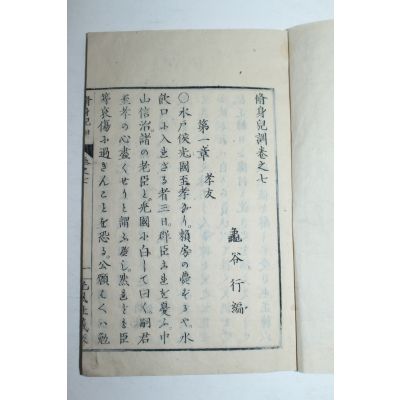 脩身兒訓卷之七
龜谷行編
第一章　孝友
○水戸侯光國至孝なり。賴房の薨ずるや水
飮口に入らざる者三日。群臣之を憂ふ。中
山信治諸の老臣と光國に白して曰く。嗣君
至孝の心盡くせりと謂ふ
等哀傷に過ぎんことを恐る。公願くハ勉
脩身兒訓
卷之七